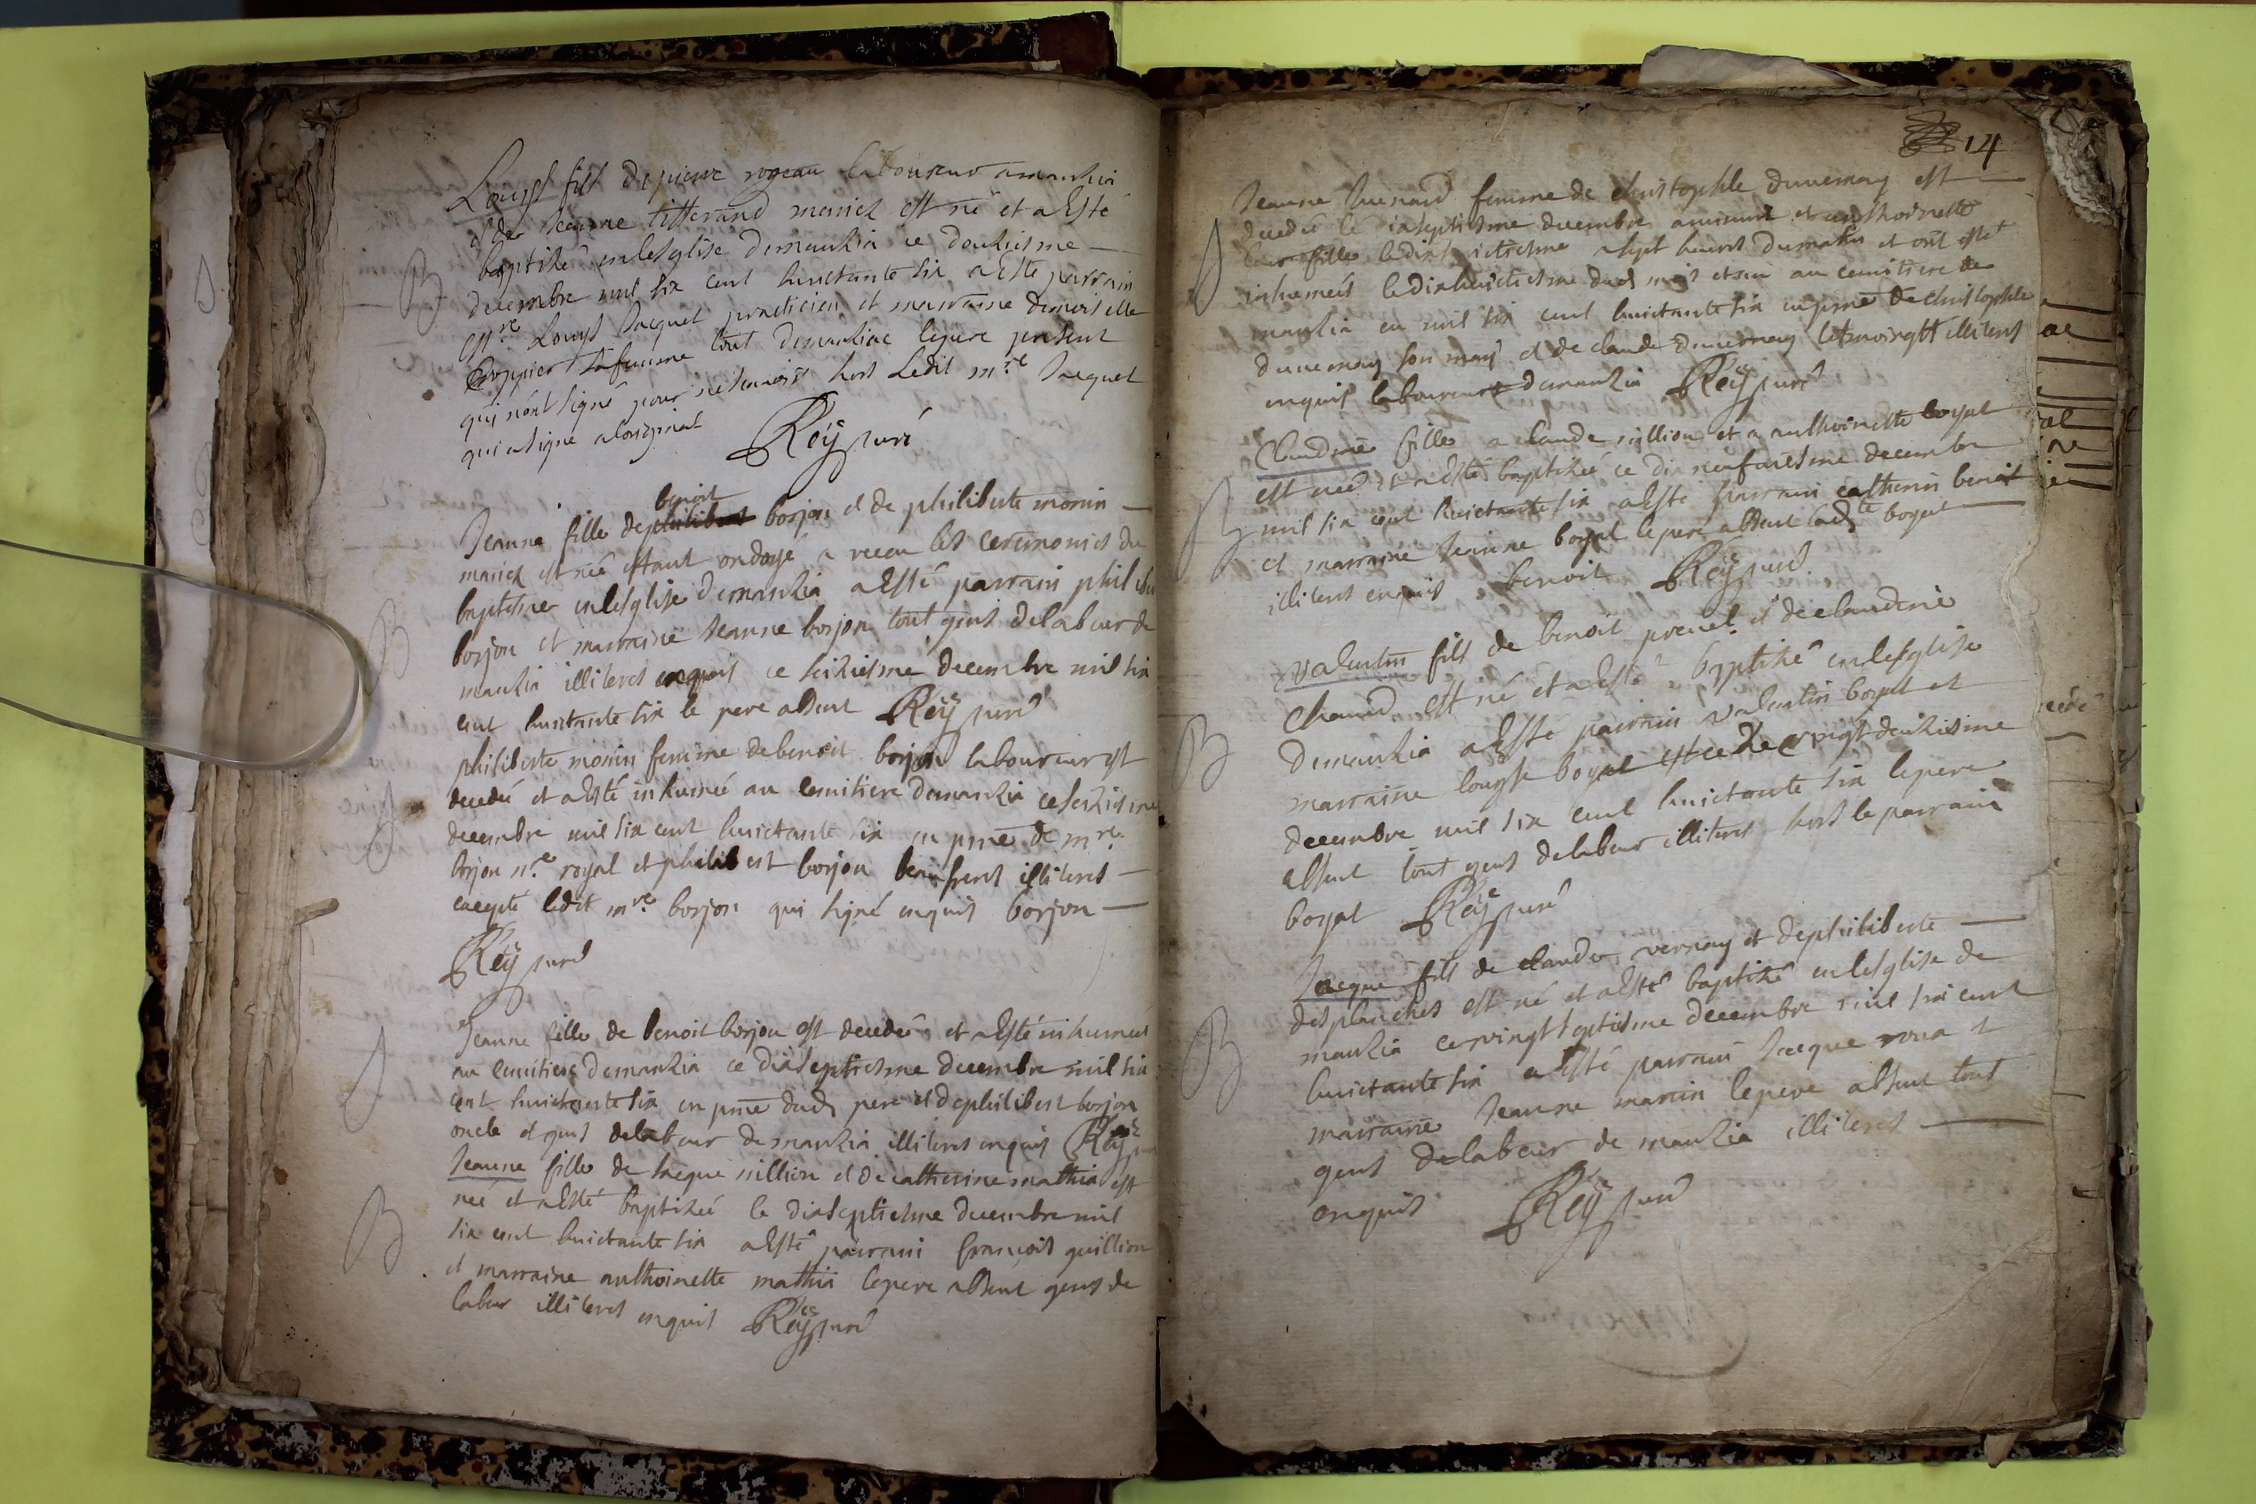 Louys fils de pierre rozeau laboureur a manzia
et de Jeanne tisserand maries est né et a Esté
baptisé en lesglise de manzia ce douziesme
B
decembre mil six cent huictante six a Este parrain
Mre Louys Jacquet practicien et marraine demoiselle
sa femme tout de manziac le pere present
qui n'ont signé pour ne scavoir hors Ledit mre Jacquet
qui a signe a loriginal Reÿ curé
benoit
Jeanne fille de philibert borjon et de philiberte monin
maries est née estant ondoyé a receu les ceremonies du
baptesme en lesglise de manzia a Esté parrain philiber
B
borjon et marraine Jeanne borjon tout gens de labeur de
manzia illiteres enquis ce seiziesme decembre mil six
cent huictante six le pere absent Reÿ curé
philiberte monin femme de benoit borjon laboureur est
decedée et a Esté inhumée au cemitiere de manzia ce seiziesme
decembre mil six cent huictante six en pñce de mre
borjon nre royal et philibert borjon beaufreres illiteres
excepte ledit mre borjon qui signé enquis borjon
Reÿ curé
Jeanne fille de benoit borjon est decedée et a Esté inhumée
au cemitiere de manzia ce dixseptiesme decembre mil six
cent huictante six en pñce dud pere et de philibert borjon
oncle et gens de labeur de manzia illiteres enquis Reÿ
Jeanne fille de Jacque million et de catherine mathia est
née et a Esté baptisée le dixseptiesme decembre mil
B
six cent huictante six a Esté parrain françois guillion
et marraine anthoinette mathia le pere absent gens de
labeur illiteres enquis Reÿ curé
14
Jeanne femme de christophle duvernay est
decedée le dixseptiesme decembre a minuit et anthoinette
leur fille le dixhuictiesme a sept heures du matin et ont esté
inhumées le dixhuictiesme dud mois et an au cemitiere de
manzia en mil six cent huictante six en pñce de christophle
duvernay son mary et de claude duvernay tesmoingts illiteres
enquis laboureurs de manzia Reÿ curé
Claudine fille a claude million et a anthoinette boyat
est née et a Esté baptisée ce dix neufviesme decembre
B
mil six cent huictante six a Esté parrain catherin benoit
et marraine Jeanne boyat le pere absent ladte boyat
illiteres enquis benoit Reÿ curé
Valentin fils de benoit prevel et de claudine
chanard est né et a Esté baptisé en lesglise
B
de manzia a Esté parrain valentin boyat et
marraine louyse boyat et ce vingt deuxiesme
decembre mil six cent huictante six le pere
absent tout gens de labeur illiteres hors le parrain
boyat Reÿ curé
Jacque fils de claude vernay et de philiberte
desplanches est né et a Esté baptisé en lesglise de
manzia ce vingt septiesme decembre mil six cent
B
huictante six a Esté parrain Jacque et
marraine Jeanne manin le pere absent tout
gens de labeur de manzia illiteres
enquis Reÿ curé